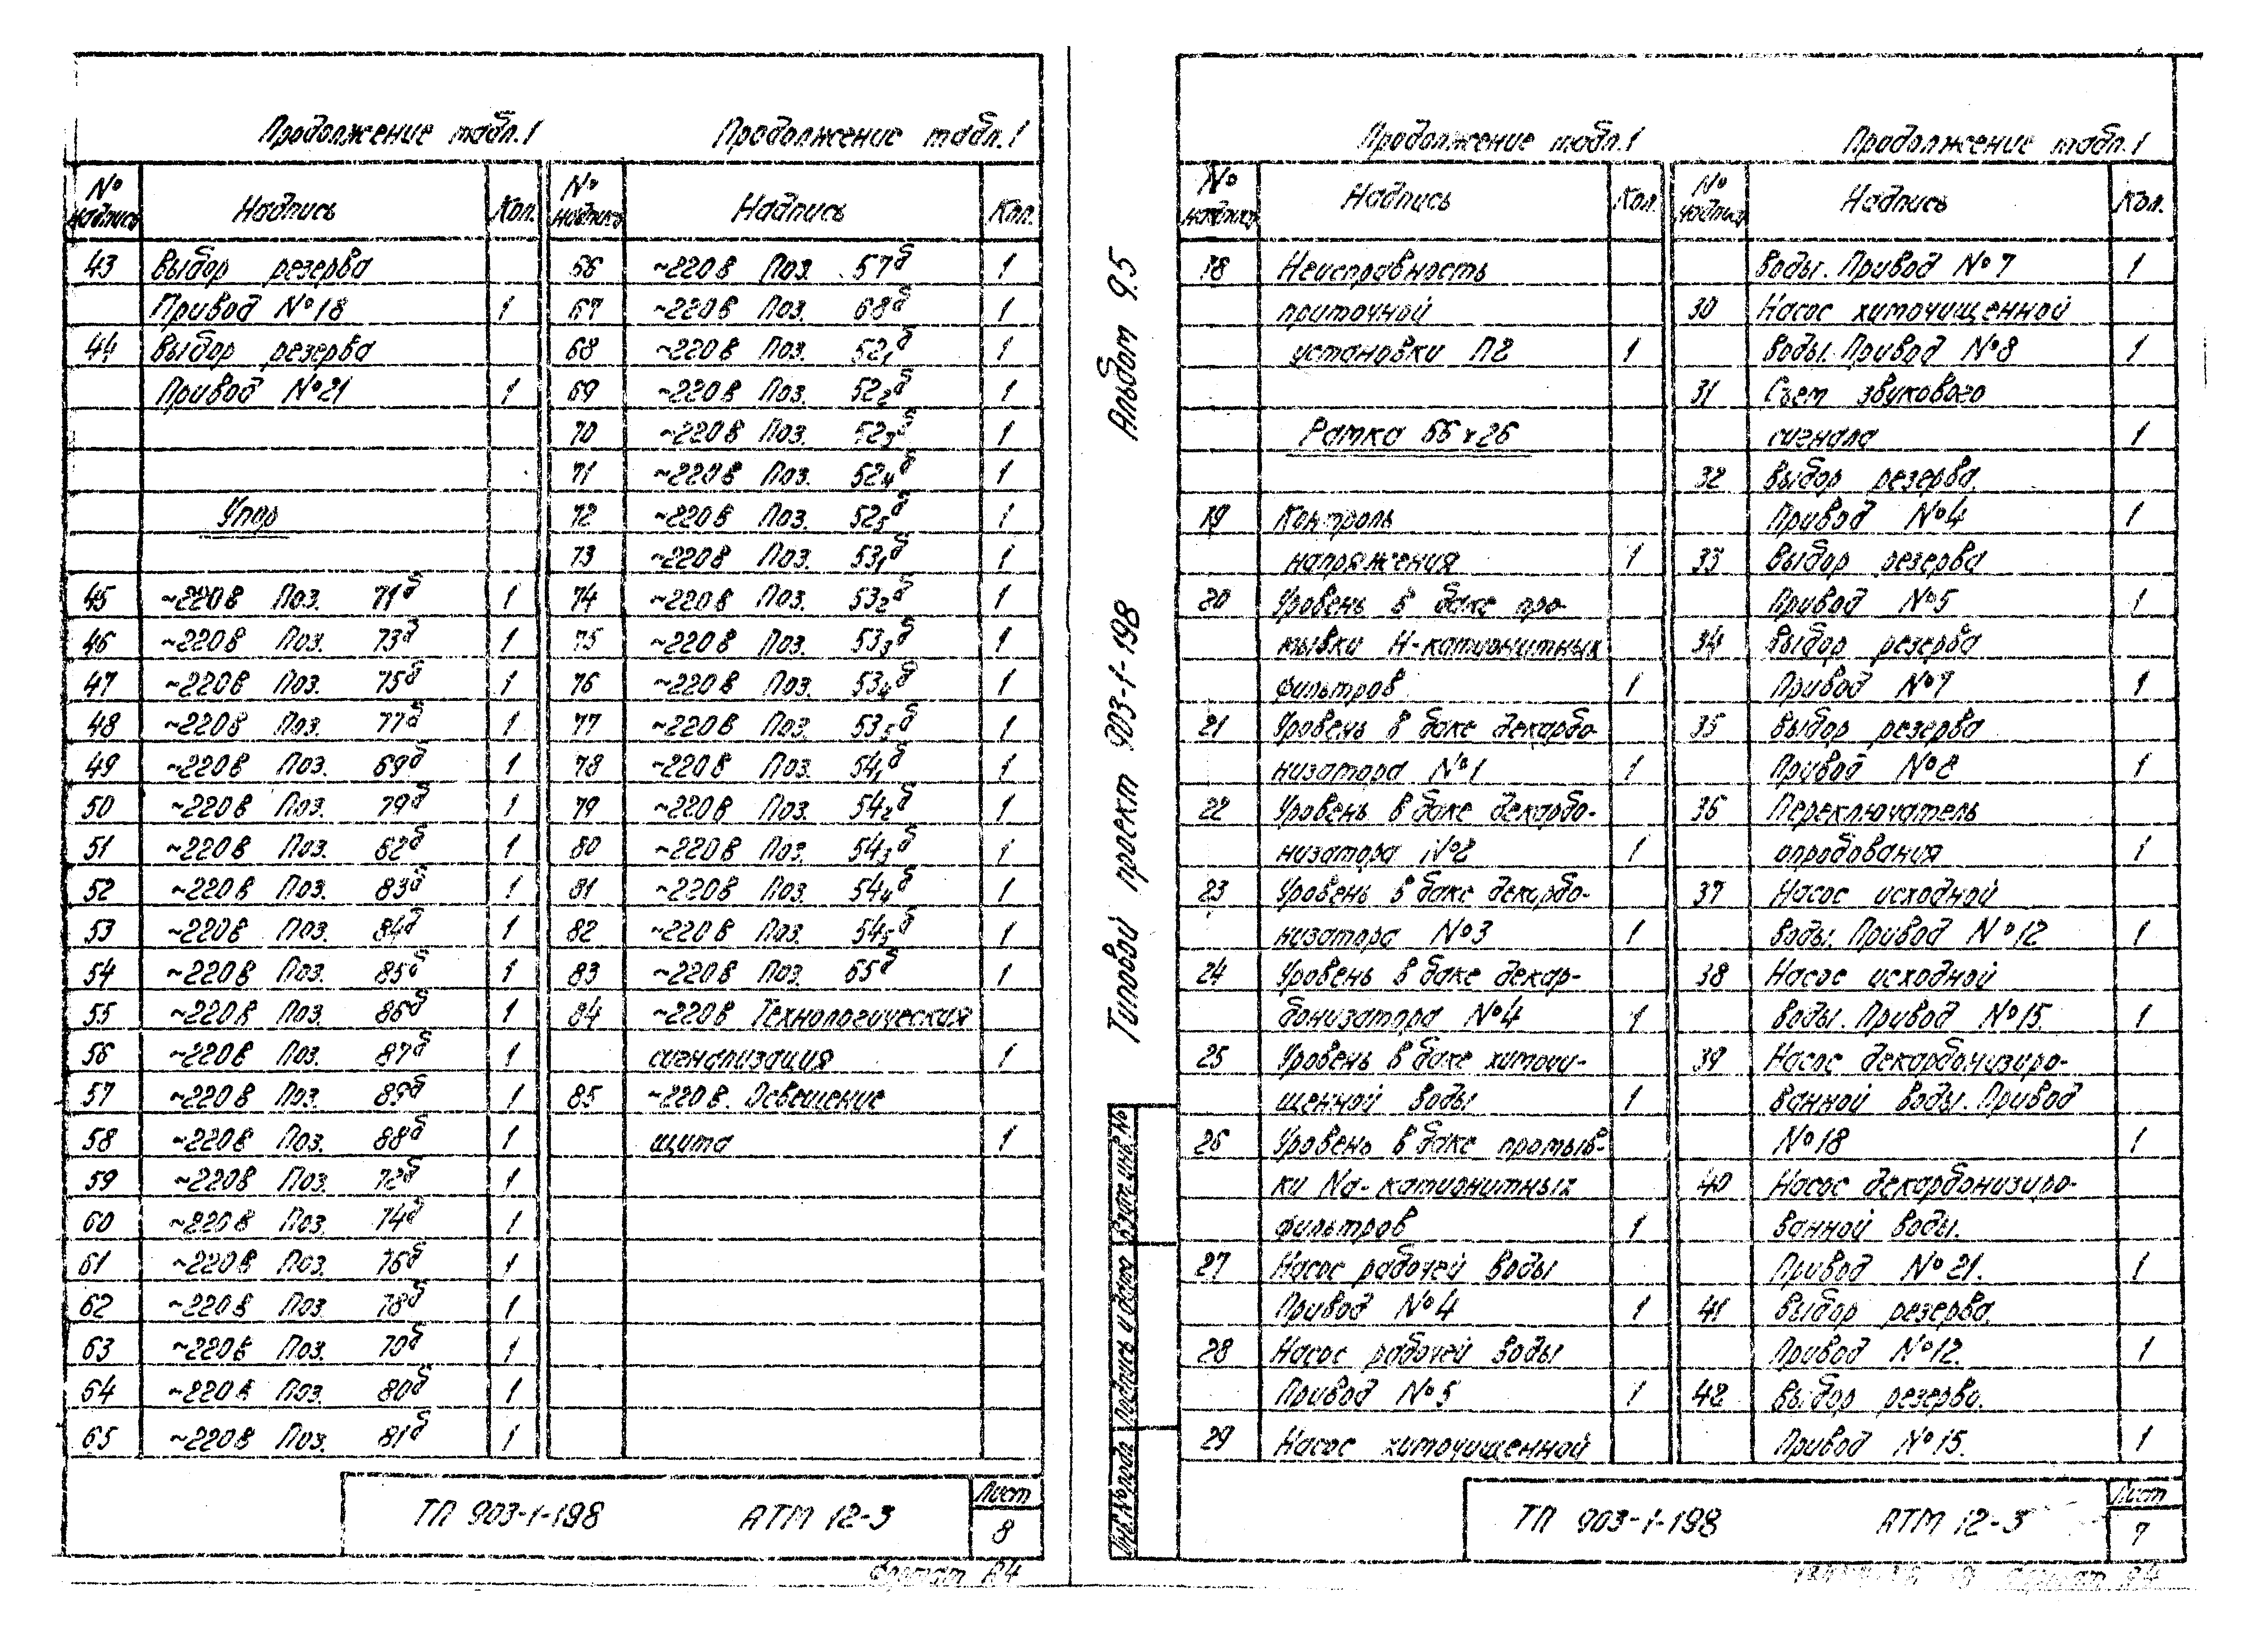 Продолжение табл.1
№ надписи Надпись Кол.
43 Выбор резерва
Привод №18 1
44 Выбор резерва
Привод №21 1
Упор
45 ~220в Поз. 71б 1
46 ~220в Поз. 73б 1
47 ~220в Поз. 75б 1
48 ~220в Поз. 77б 1
49 ~220в Поз. 69б 1
50 ~220в Поз. 79б 1
51 ~220в Поз. 82б 1
52 ~220в Поз. 83б 1
53 ~220в Поз. 84б 1
54 ~220в Поз. 85б 1
55 ~220в Поз. 86б 1
56 ~220в Поз. 87б 1
57 ~220в Поз. 89б 1
58 ~220в Поз. 88б 1
59 ~220в Поз. 72б 1
60 ~220в Поз. 74б 1
61 ~220в Поз. 76б 1
62 ~220в Поз. 78б 1
63 ~220в Поз. 70б 1
64 ~220в Поз. 80б 1
65 ~220в Поз. 81б 1
Продолжение табл.1
№ надписи Надпись Кол.
66 ~220в Поз. 57б 1
67 ~220в Поз. 68б 1
68 ~220в Поз. 52₁б 1
69 ~220в Поз. 52₂б 1
70 ~220в Поз. 52₃б 1
71 ~220в Поз. 52₄б 1
72 ~220в Поз. 52₅б 1
73 ~220в Поз. 53₁б 1
74 ~220в Поз. 53₂б 1
75 ~220в Поз. 53₃б 1
76 ~220в Поз. 53₄б 1
77 ~220в Поз. 53₅б 1
78 ~220в Поз. 54₁б 1
79 ~220в Поз. 54₂б 1
80 ~220в Поз. 54₃б 1
81 ~220в Поз. 54₄б 1
82 ~220в Поз. 54₅б 1
83 ~220в Поз. 65б 1
84 ~220в Технологическая
сигнализация 1
85 ~220в. Освещение
щита 1
ТП 903-1-198 АТМ 12-3
Лист
8
Формат А4
Альбом 9.5
Типовой проект 903-1-198
Инв.№ подл. Подпись и дата Взам.инв.№
Продолжение табл.1
№ надписи Надпись Кол.
18 Неисправность
приточной
установки П2 1
Рамка 66х26
19 Контроль
напряжения 1
20 Уровень в баке про-
мывки Н-катионитных
фильтров 1
21 Уровень в баке декарбо-
низатора №1 1
22 Уровень в баке декарбо-
низатора №2 1
23 Уровень в баке декарбо-
низатора №3 1
24 Уровень в баке декар-
бонизатора №4 1
25 Уровень в баке химочи-
щенной воды 1
26 Уровень в баке промыв-
ки Na-катионитных
фильтров 1
27 Насос рабочей воды
Привод №4 1
28 Насос рабочей воды
Привод №5 1
29 Насос химочищенной
Продолжение табл.1
№ надписи Надпись Кол.
воды. Привод №7 1
30 Насос химочищенной
воды. Привод №8 1
31 Съем звукового
сигнала 1
32 Выбор резерва.
Привод №4 1
33 Выбор резерва
Привод №5 1
34 Выбор резерва
Привод №7 1
35 Выбор резерва
Привод №8 1
36 Переключатель
опробования 1
37 Насос исходной
воды. Привод №12 1
38 Насос исходной
воды. Привод №15. 1
39 Насос декарбонизиро-
ванной воды. Привод
№18 1
40 Насос декарбонизиро-
ванной воды.
Привод №21. 1
41 Выбор резерва.
Привод №12. 1
42 Выбор резерва.
Привод №15. 1
ТП 903-1-198 АТМ 12-3
Лист
7
Формат А4